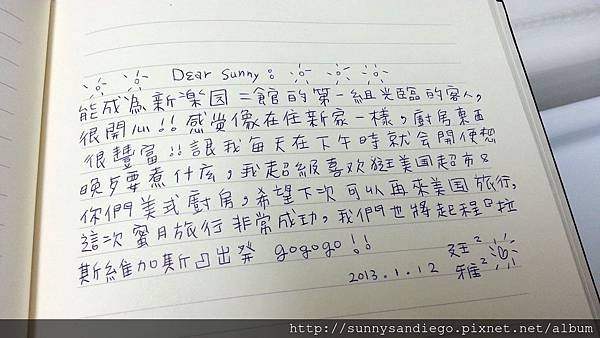 Dear Sunny:
能成為新樂园二館的第一組光臨的客人,
很開心!! 感覺像在住新家一樣,廚房東西
很豐富!! 讓我每天在下午時就会開使想
晚歺要煮什庅,我超級喜欢逛美国超市&
你們美式廚房,希望下次可以再來美国旅行,
這次蜜月旅行非常成功,我們也將起程『拉
斯維加斯』出發 gogogo!!
2013.1.12
雅²
http://sunnysandiego.pixnet.net/album